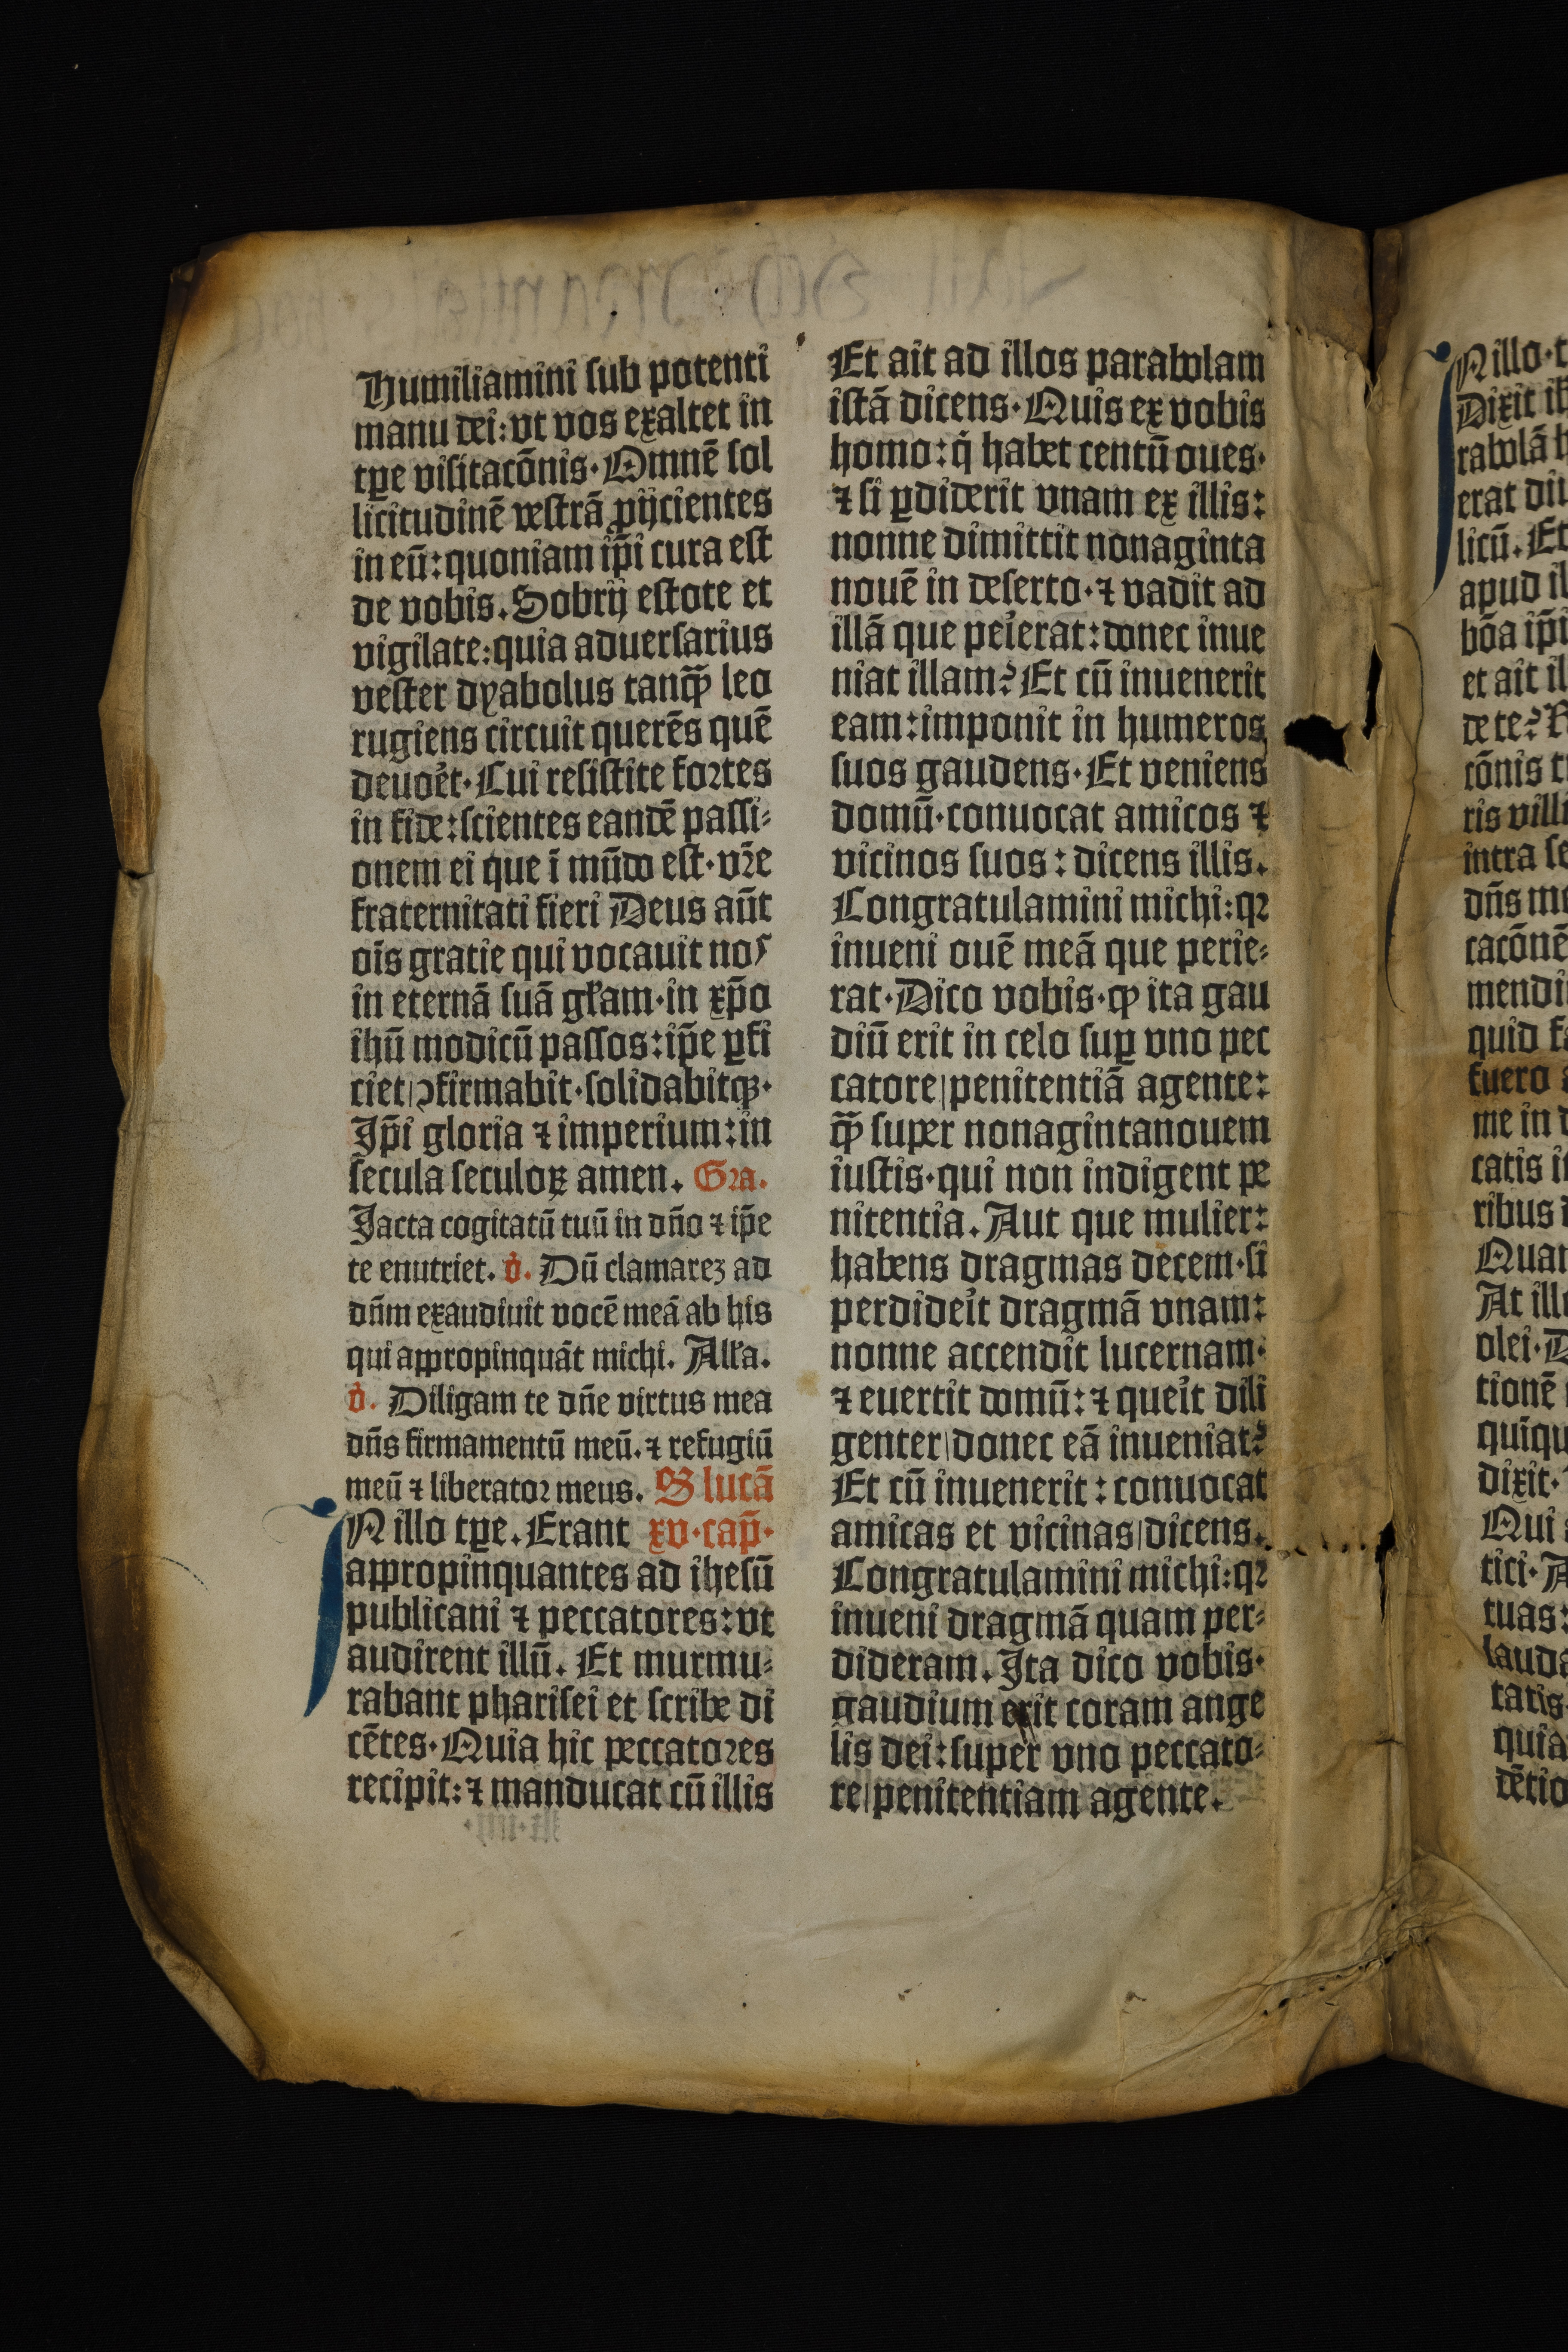 Humiliamini sub potenti
manu dei: vt vos exaltet in
tp̱e visitacōnis. Omnē sol
licitudinē vestrā ꝓijcientes
in eū: quoniam ip̄i cura est
de vobis. Sobrij estote et
vigilate: quia aduersarius
vester dyabolus tanꝙ̄ leo
rugiens circuit querēs quē
deuoȓet. Cui resistite fortes
in fide: scientes eandē passi-
onem ei que ī mūdo est. vr̄e
fraternitati fieri Deus aūt
oīs gratie qui vocauit nos
in eternā suā gl̄am. in xp̄o
ihū modicū passos: ip̄e ꝑfi
ciet ꝯfirmabit. solidabitqꝫ.
Ip̄i gloria ⁊ imperium: in
secula seculoꝝ amen. Gra.
Jacta cogitatū tuū in dn̄o ⁊ ip̄e
te enutriet. v̇. Dū clamareꝫ ad
dn̄m exaudiuit vocē meā ab his
qui appropinquāt michi. All̄a.
v̇. Diligam te dn̄e virtus mea
dn̄s firmamentū meū. ⁊ refugiū
meū ⁊ liberator meus. S lucā
IN illo tꝑe. Erant xv. cap̄.
appropinquantes ad ihesū
publicani ⁊ peccatores: vt
audirent illū. Et murmu-
rabant pharisei et scribe di
cētes. Quia hic peccatores
recipit: ⁊ manducat cū illis
Et ait ad illos parabolam
istā dicens. Quis ex vobis
homo: qͥ habet centū oues.
⁊ si ꝑdiderit vnam ex illis:
nonne dimittit nonaginta
nouē in deserto. ⁊ vadit ad
illā que peȓierat: donec inue
niat illam? Et cū inuenerit
eam: imponit in humeros
suos gaudens. Et veniens
domū. conuocat amicos ⁊
vicinos suos: dicens illis.
Congratulamini michi: qꝛ
inueni ouē meā que perie-
rat. Dico vobis. ꝙ ita gau
diū erit in celo suꝑ vno pec
catore penitentiā agente:
ꝙ̄ super nonagintanouem
iustis. qui non indigent pe
nitentia. Aut que mulier:
habens dragmas decem. si
perdideȓit dragmā vnam:
nonne accendit lucernam.
⁊ euertit domū: ⁊ queȓit dili
genter donec eā inueniat?
Et cū inuenerit: conuocat
amicas et vicinas dicens.
Congratulamini michi: qꝛ
inueni dragmā quam per-
dideram. Ita dico vobis.
gaudium erit coram ange
lis dei: super vno peccato-
re penitentiam agente.
IN illo. t
Dixit ih
rabolā h
erat diu
licū. Et
apud il
bōa ip̄i
et ait il
de te? R
cōnis t
ris villi
intra se
dn̄s me
cacōnē
mendi
quid fa
fuero a
me in d
catis i
ribus
Quan
At ille
olei. D
tionē
quīqu
dixit.
Qui
tici. A
tuas:
lauda
tatis
quia
dētio